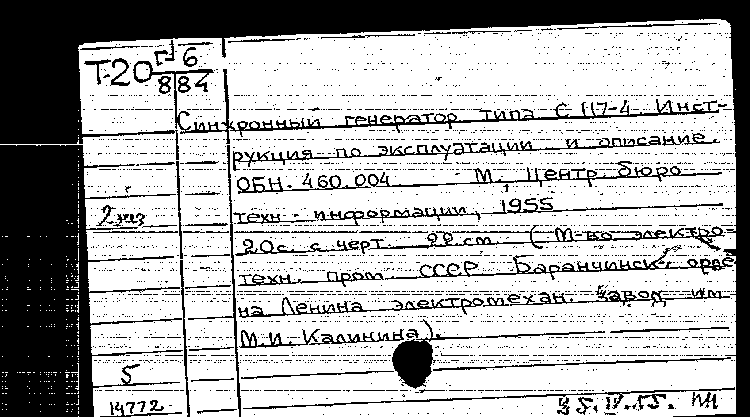 Т-20 Г-6
884
Синхронный генератор типа С 117-4. Инст-
рукция по эксплуатации и описание.
ОБН. 460.004 М., Центр. бюро
2 экз техн. информации, 1955
20 с. с черт. 22 см. (М-во электро-
техн. пром. СССР Баранчинск. орде
на Ленина электромехан. завод им.
М.И. Калинина).
5
14772